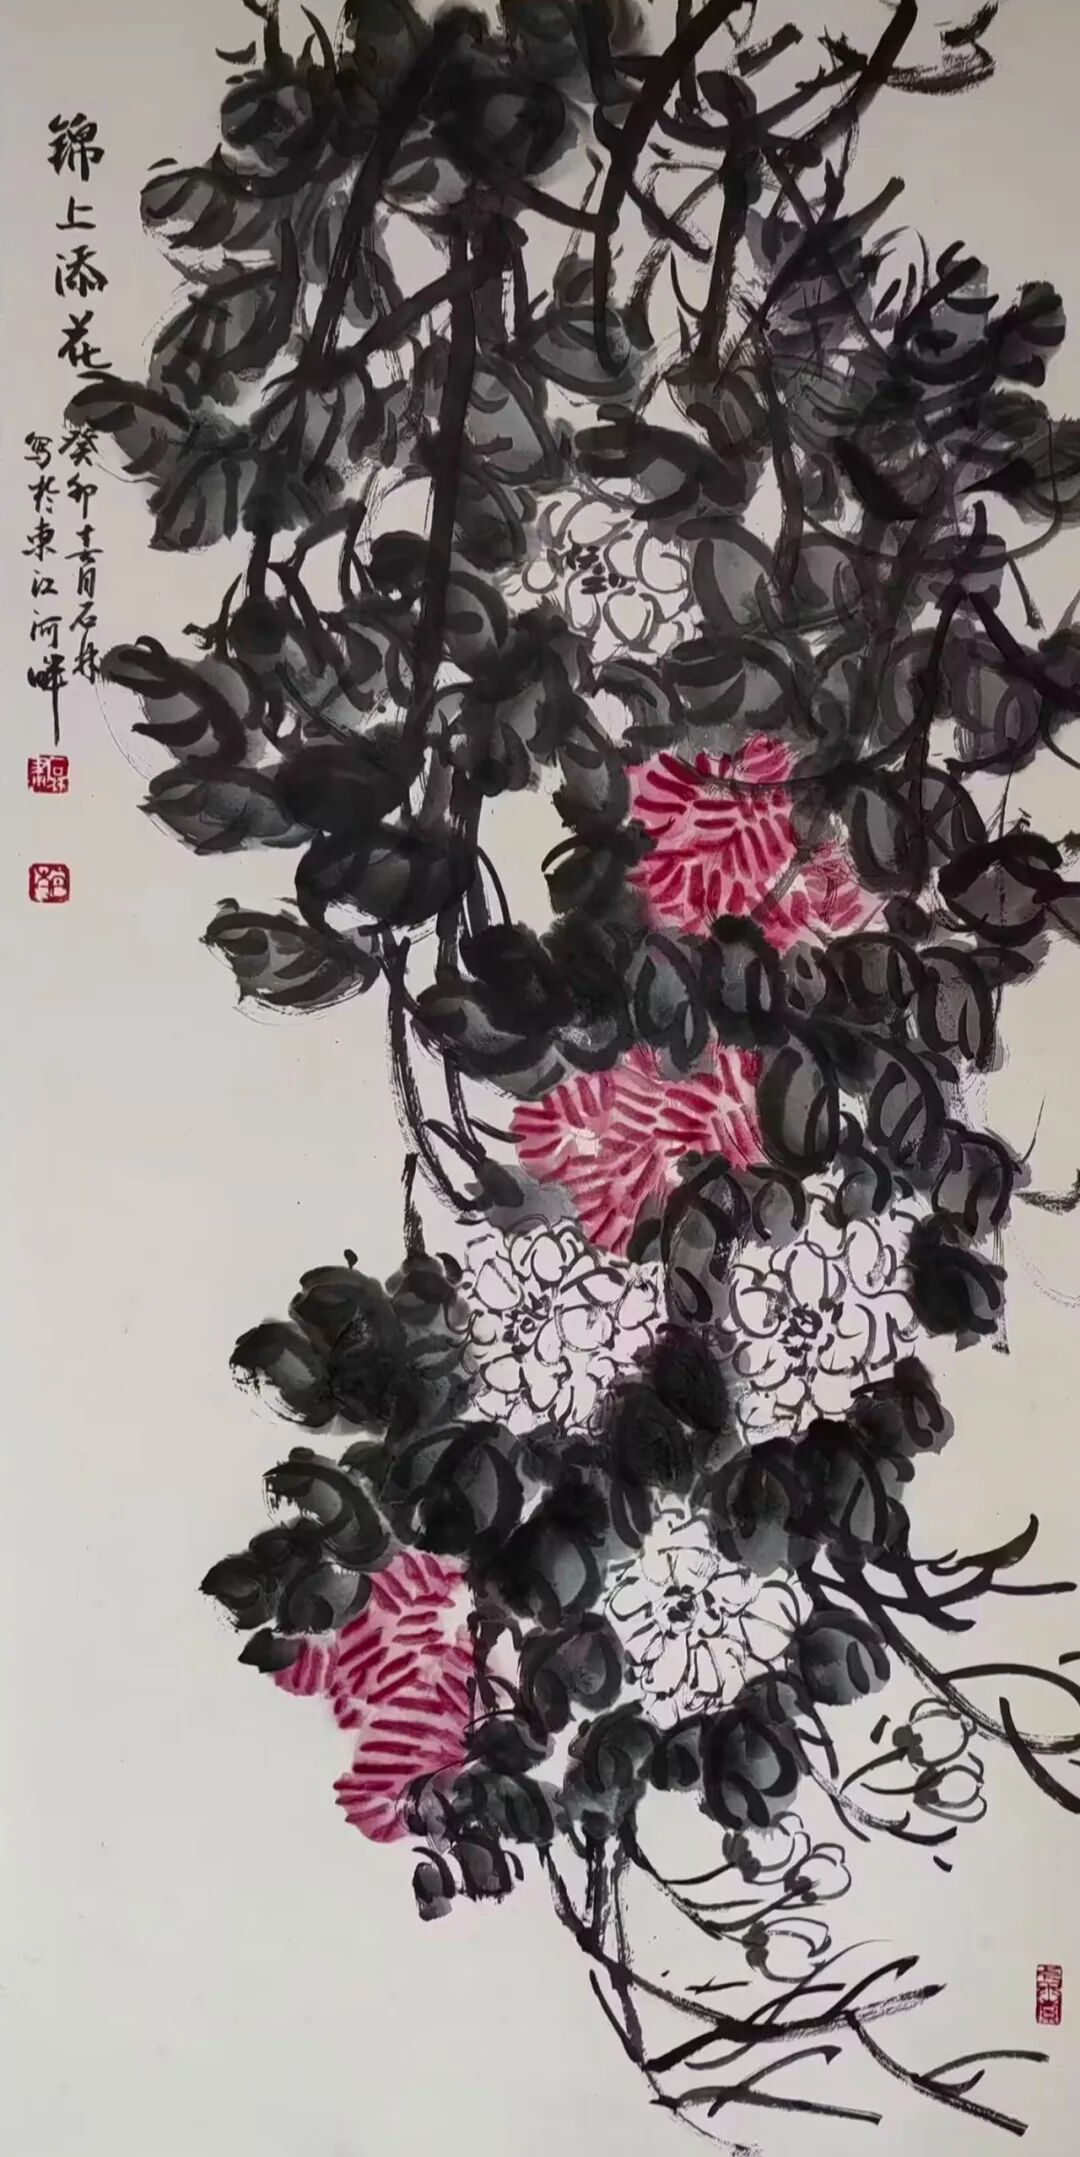 锦上添花
癸卯十一月石林
写於東江河畔